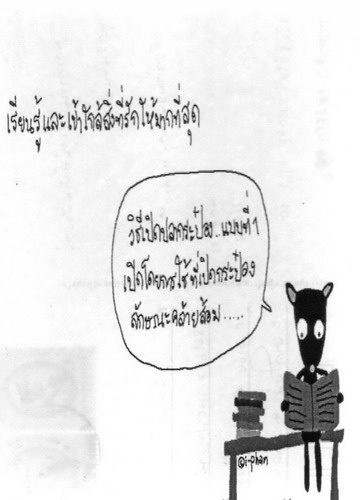 เรียนรู้และเข้าใกล้สิ่งที่รักให้มากที่สุด
วิธีเปิดปลากระป๋อง..แบบที่ 1
เปิดโดยการใช้ที่เปิดกระป๋อง
ลักษณะคล้ายส้อม.....
@i-phan